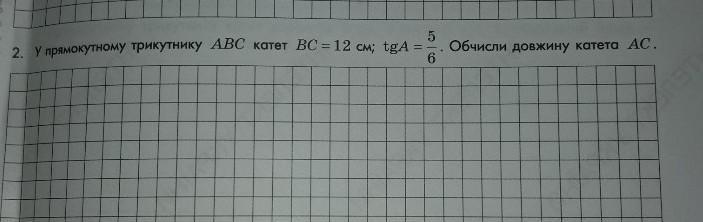 2. У прямокутному трикутнику ABC катет BC = 12 см; tgA = 5/6. Обчисли довжину катета AC.